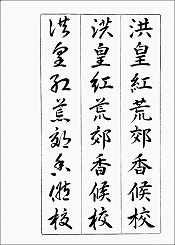 洪皇紅荒郊香候校
洪皇紅荒郊香候校
洪皇紅荒郊香候校